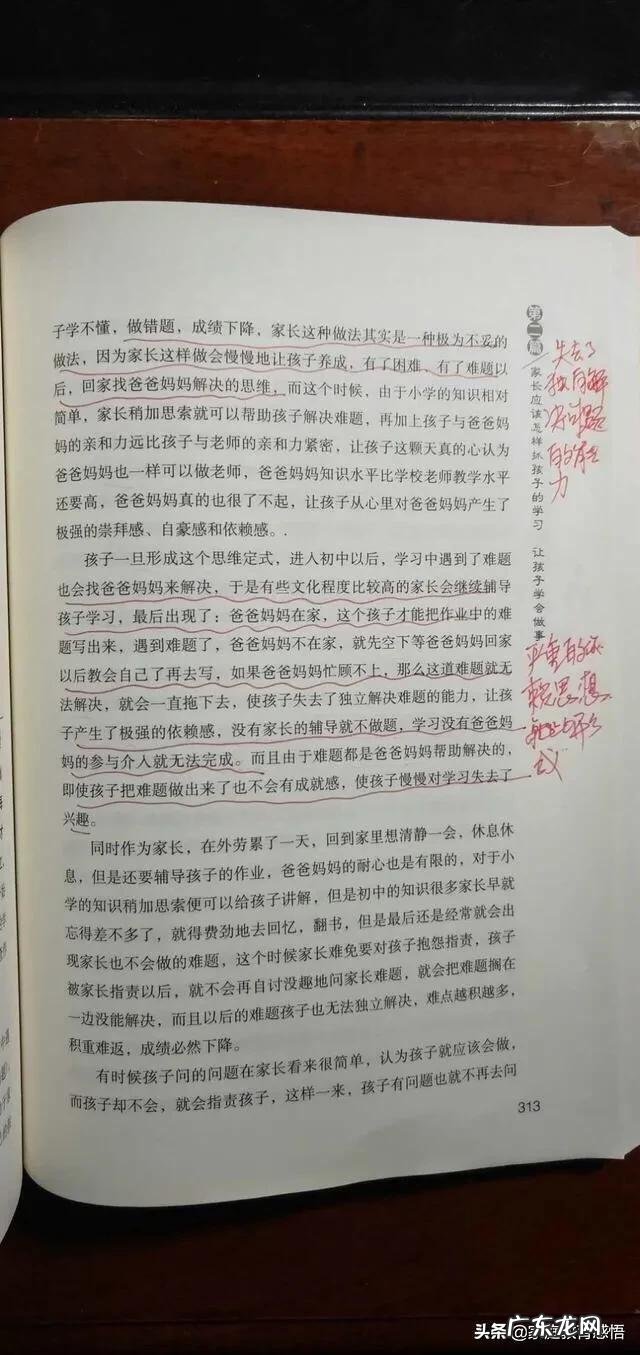 子学不懂，做错题，成绩下降，家长这种做法其实是一种极为不妥的
做法，因为家长这样做会慢慢地让孩子养成，有了困难、有了难题以
后，回家找爸爸妈妈解决的思维，而这个时候，由于小学的知识相对
简单，家长稍加思索就可以帮助孩子解决难题，再加上孩子与爸爸妈
妈的亲和力远比孩子与老师的亲和力紧密，让孩子这颗天真的心认为
爸爸妈妈也一样可以做老师，爸爸妈妈知识水平比学校老师教学水平
还要高，爸爸妈妈真的也很了不起，让孩子从心里对爸爸妈妈产生了
极强的崇拜感、自豪感和依赖感。.
孩子一旦形成这个思维定式，进人初中以后，学习中遇到了难题
也会找爸爸妈妈来解决，于是有些文化程度比较高的家长会继续辅导
孩子学习，最后出现了：爸爸妈妈在家，这个孩子才能把作业中的难
题写出来，遇到难题了，爸爸妈妈不在家，就先空下等爸爸妈妈回家
以后教会自己了再去写，如果爸爸妈妈忙顾不上，那么这道难题就无
法解决，就会一直拖下去，使孩子失去了独立解决难题的能力，让孩
子产生了极强的依赖感，没有家长的辅导就不做题，学习没有爸爸妈
妈的参与介人就无法完成。而且由于难题都是爸爸妈妈帮助解决的，
即使孩子把难题做出来了也不会有成就感，使孩子慢慢对学习失去了
兴趣。
同时作为家长，在外劳累了一天，回到家里想清静一会，休息休
息，但是还要辅导孩子的作业，爸爸妈妈的耐心也是有限的，对于小
学的知识稍加思索便可以给孩子讲解，但是初中的知识很多家长早就
忘得差不多了，就得费劲地去回忆，翻书，但是最后还是经常就会出
现家长也不会做的难题，这个时候家长难免要对孩子抱怨指责，孩子
被家长指责以后，就不会再自讨没趣地问家长难题，就会把难题搁在
一边没能解决，而且以后的难题孩子也无法独立解决，难点越积越多，
积重难返，成绩必然下降。
有时候孩子问的问题在家长看来很简单，认为孩子就应该会做，
而孩子却不会，就会指责孩子，这样一来，孩子有问题也就不再去问
313
第二篇
家长应该怎样抓孩子的学习 让孩子学会做事
失去了
独自解
决问题
的能
力
赖思想
头条@家庭教育感悟
广东龙网